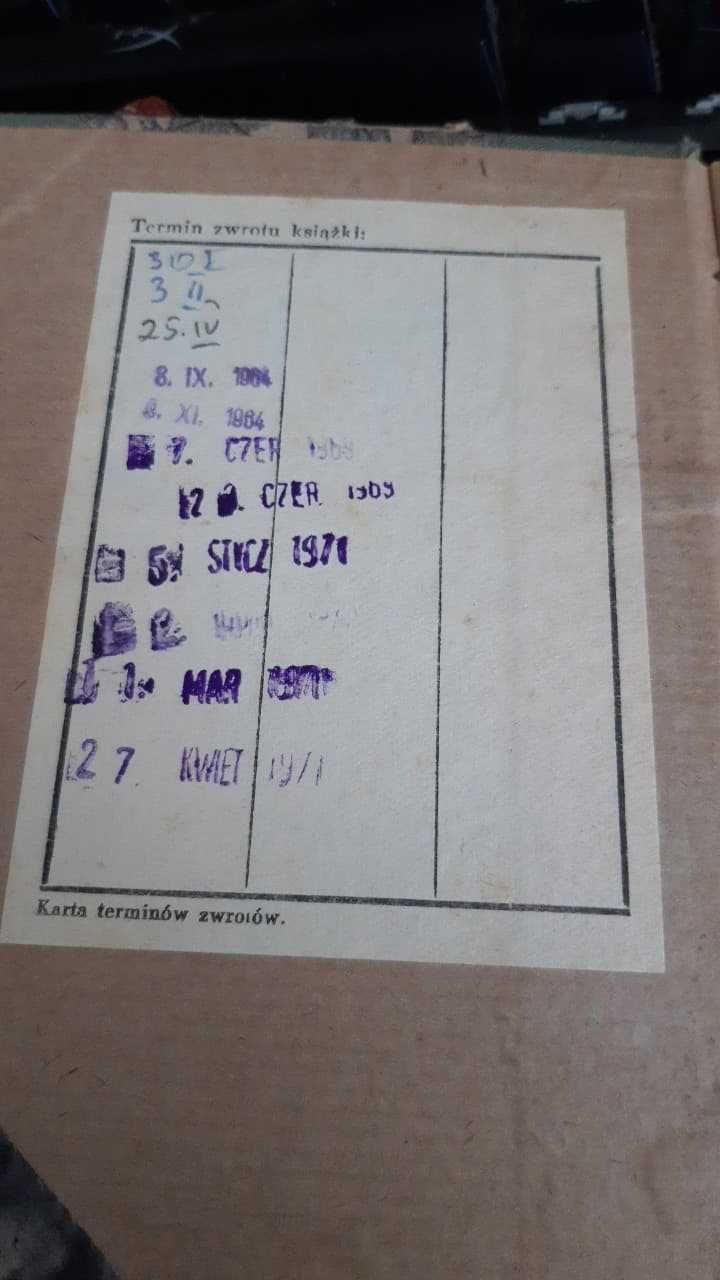 Termin zwrotu książki:
3 II
25. IV
8. IX. 1964
8. XI. 1964
7. CZER 1969
2 CZER. 1969
5 STYCZ 1971
MAR 1971
27 KWIET 1971
Karta terminów zwrotów.